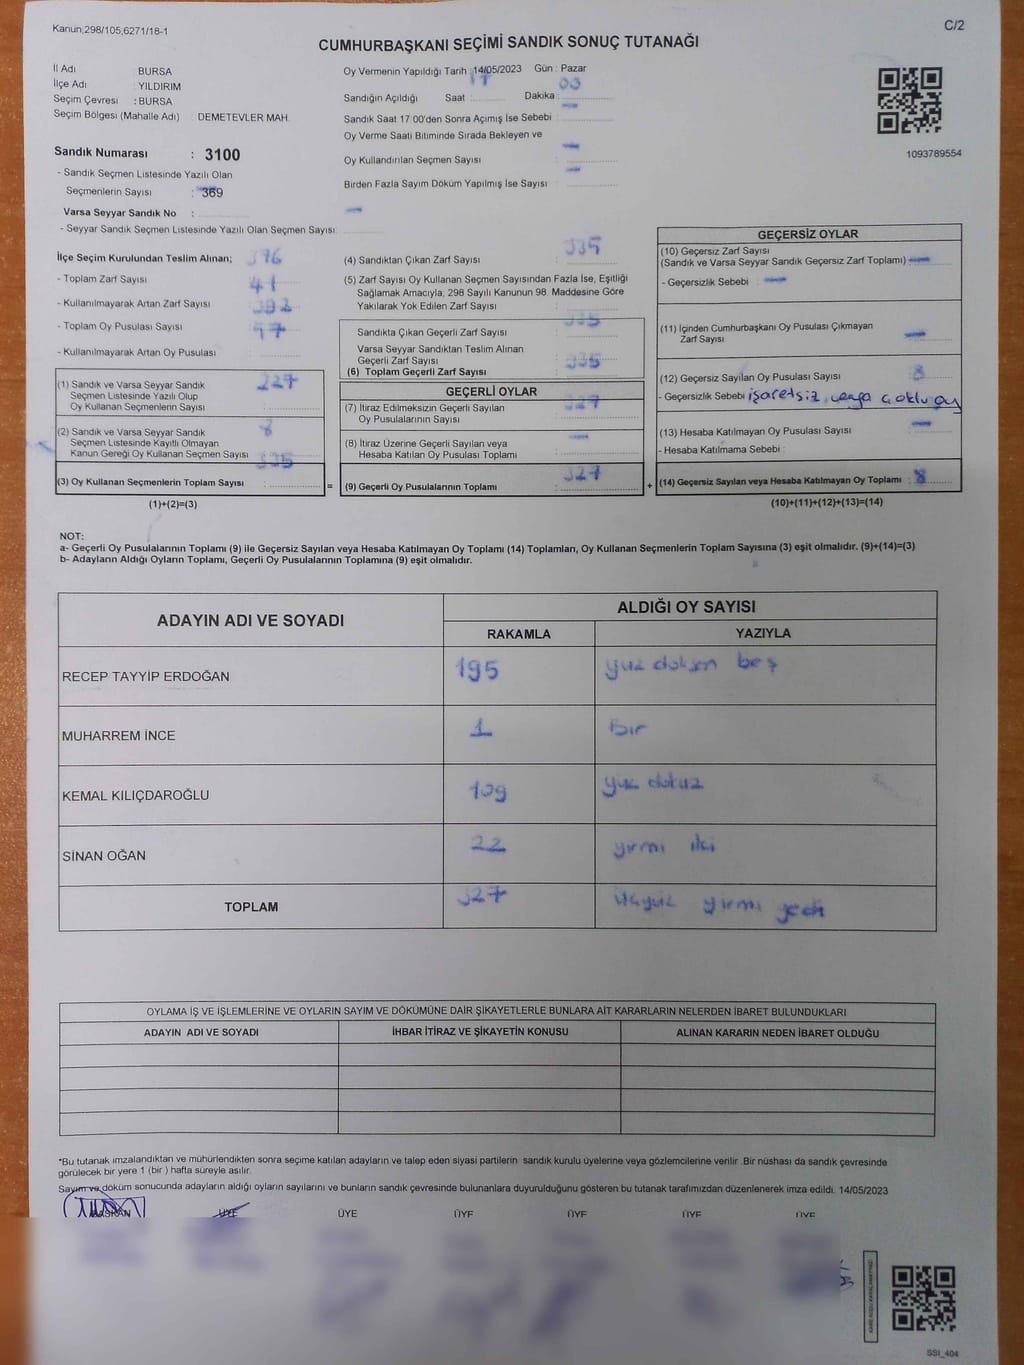 Kanun;298/105;6271/18-1
C/2
CUMHURBAŞKANI SEÇİMİ SANDIK SONUÇ TUTANAĞI
İl Adı BURSA
İlçe Adı : YILDIRIM
Seçim Çevresi : BURSA
Seçim Bölgesi (Mahalle Adı) DEMETEVLER MAH.
Oy Vermenin Yapıldığı Tarih : 14/05/2023 Gün : Pazar
Sandığın Açıldığı Saat : 17 Dakika : 00
Sandık Saat 17 00'den Sonra Açımış İse Sebebi : —
Oy Verme Saati Bitiminde Sırada Bekleyen ve
Oy Kullandırılan Seçmen Sayısı : —
Birden Fazla Sayım Döküm Yapılmış İse Sayısı : —
1093789554
Sandık Numarası : 3100
- Sandık Seçmen Listesinde Yazılı Olan
Seçmenlerin Sayısı : 369
Varsa Seyyar Sandık No : —
- Seyyar Sandık Seçmen Listesinde Yazılı Olan Seçmen Sayısı:
İlçe Seçim Kurulundan Teslim Alınan; 376
- Toplam Zarf Sayısı 41
- Kullanılmayarak Artan Zarf Sayısı
- Toplam Oy Pusulası Sayısı
- Kullanılmayarak Artan Oy Pusulası
(1) Sandık ve Varsa Seyyar Sandık 227
Seçmen Listesinde Yazılı Olup
Oy Kullanan Seçmenlerin Sayısı
(2) Sandık ve Varsa Seyyar Sandık 8
Seçmen Listesinde Kayıtlı Olmayan
Kanun Gereği Oy Kullanan Seçmen Sayısı 335
(3) Oy Kullanan Seçmenlerin Toplam Sayısı :
(1)+(2)=(3)
(4) Sandıktan Çıkan Zarf Sayısı : 335
(5) Zarf Sayısı Oy Kullanan Seçmen Sayısından Fazla İse, Eşitliği
Sağlamak Amacıyla; 298 Sayılı Kanunun 98. Maddesine Göre
Yakılarak Yok Edilen Zarf Sayısı :
Sandıkta Çıkan Geçerli Zarf Sayısı : 335
Varsa Seyyar Sandıktan Teslim Alınan
Geçerli Zarf Sayısı
(6) Toplam Geçerli Zarf Sayısı : 335
GEÇERLİ OYLAR
(7) İtiraz Edilmeksizin Geçerli Sayılan 327
Oy Pusulalarının Sayısı
(8) İtiraz Üzerine Geçerli Sayılan veya —
Hesaba Katılan Oy Pusulası Toplamı
= (9) Geçerli Oy Pusulalarının Toplamı 327
GEÇERSİZ OYLAR
(10) Geçersiz Zarf Sayısı
(Sandık ve Varsa Seyyar Sandık Geçersiz Zarf Toplamı) —
- Geçersizlik Sebebi : —
(11) İçinden Cumhurbaşkanı Oy Pusulası Çıkmayan
Zarf Sayısı —
(12) Geçersiz Sayılan Oy Pusulası Sayısı : 8
- Geçersizlik Sebebi işaretsiz veya çoklu oy
(13) Hesaba Katılmayan Oy Pusulası Sayısı —
- Hesaba Katılmama Sebebi :
+ (14) Geçersiz Sayılan veya Hesaba Katılmayan Oy Toplamı : 8
(10)+(11)+(12)+(13)=(14)
NOT:
a- Geçerli Oy Pusulalarının Toplamı (9) ile Geçersiz Sayılan veya Hesaba Katılmayan Oy Toplamı (14) Toplamları, Oy Kullanan Seçmenlerin Toplam Sayısına (3) eşit olmalıdır. (9)+(14)=(3)
b- Adayların Aldığı Oyların Toplamı, Geçerli Oy Pusulalarının Toplamına (9) eşit olmalıdır.
ADAYIN ADI VE SOYADI
ALDIĞI OY SAYISI
RAKAMLA YAZIYLA
RECEP TAYYİP ERDOĞAN 195 yüz doksan beş
MUHARREM İNCE 1 Bir
KEMAL KILIÇDAROĞLU 109 yüz dokuz
SİNAN OĞAN 22 yirmi iki
TOPLAM 327 üçyüz yirmi yedi
OYLAMA İŞ VE İŞLEMLERİNE VE OYLARIN SAYIM VE DÖKÜMÜNE DAİR ŞİKAYETLERLE BUNLARA AİT KARARLARIN NELERDEN İBARET BULUNDUKLARI
ADAYIN ADI VE SOYADI İHBAR İTİRAZ VE ŞİKAYETİN KONUSU ALINAN KARARIN NEDEN İBARET OLDUĞU
*Bu tutanak imzalandıktan ve mühürlendikten sonra seçime katılan adayların ve talep eden siyasi partilerin sandık kurulu üyelerine veya gözlemcilerine verilir .Bir nüshası da sandık çevresinde
görülecek bir yere 1 (bir ) hafta süreyle asılır.
Sayım ve döküm sonucunda adayların aldığı oyların sayılarını ve bunların sandık çevresinde bulunanlara duyurulduğunu gösteren bu tutanak tarafımızdan düzenlenerek imza edildi. 14/05/2023
BAŞKAN ÜYE ÜYE ÜYE ÜYE ÜYE ÜYE
SSI_404